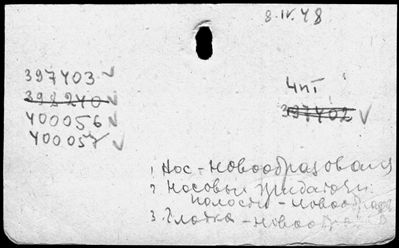 8.IV.48
397403 ✓
398240 ✓
400056 ✓
400057 ✓
Чит.
397402 ✓
1. Нос - новообразования
2 Носовые придаточн.
полости - новообразов
3. Глотка - новообра